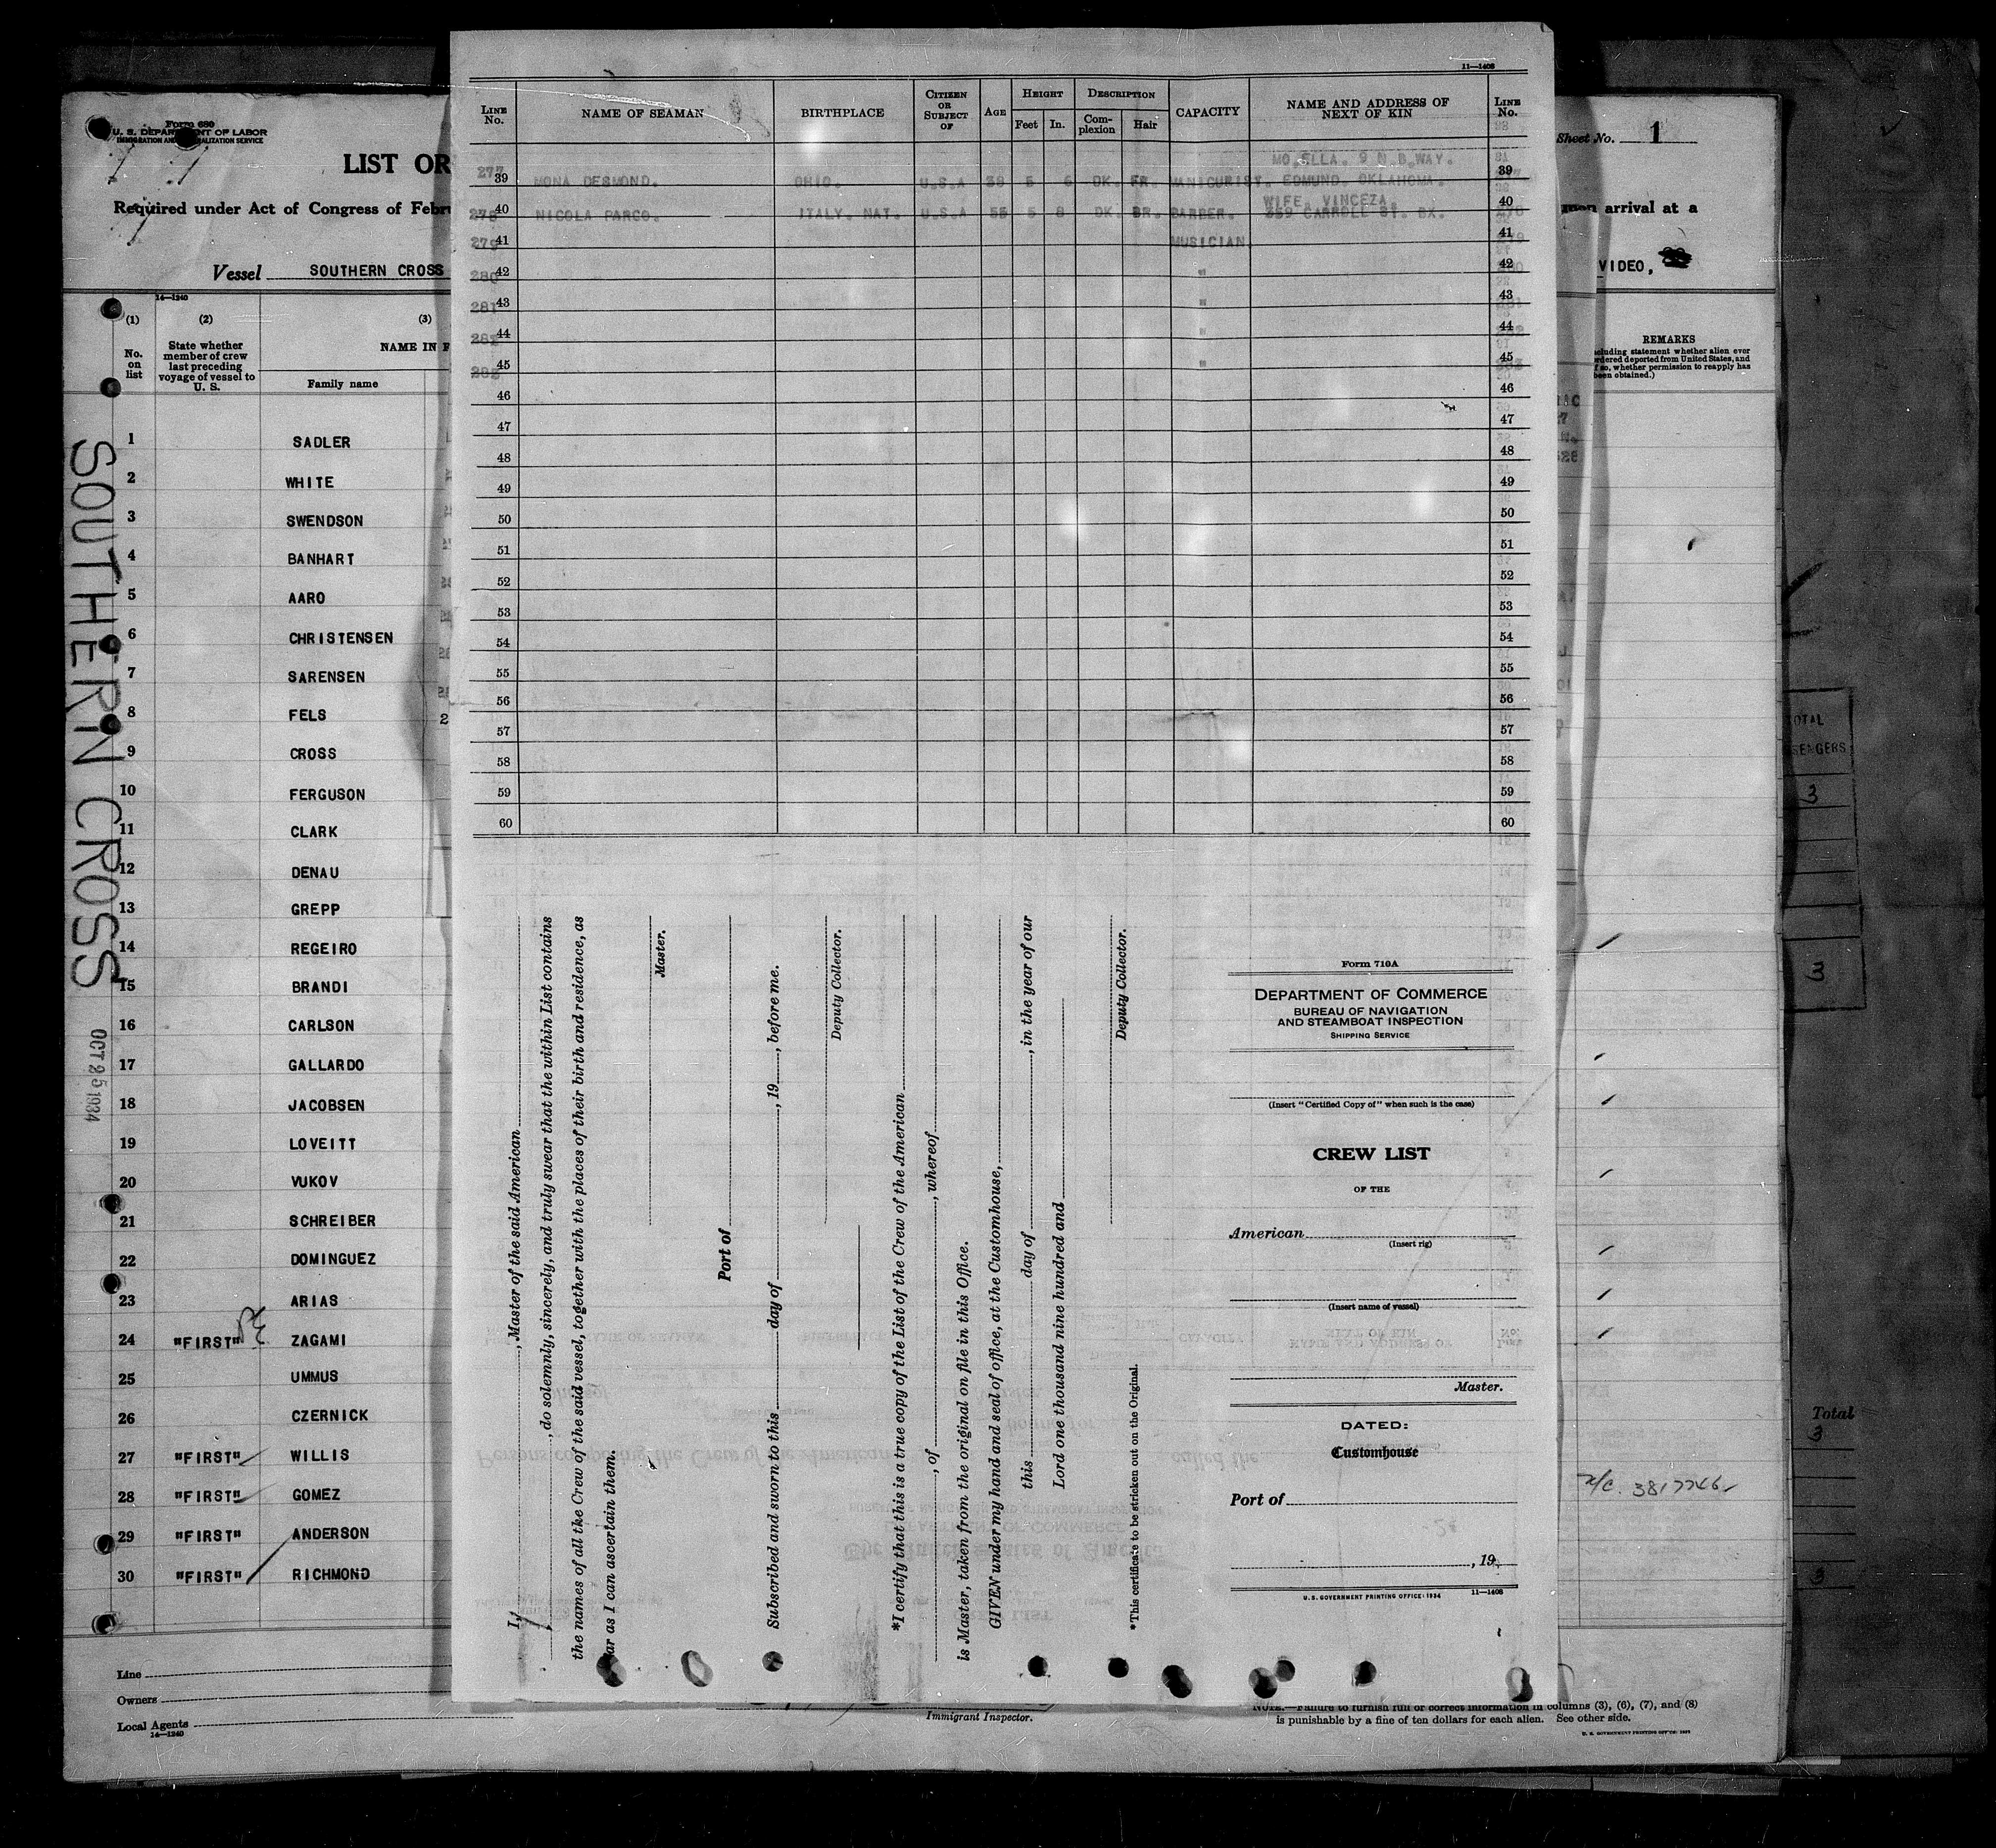 Form 680
U. S. DEPARTMENT OF LABOR
IMMIGRATION AND NATURALIZATION SERVICE
LIST OR
Required under Act of Congress of Febru
Vessel SOUTHERN CROSS
14—1240
(1) (2) (3)
No. on list
State whether member of crew last preceding voyage of vessel to U. S.
NAME IN F
Family name
1 SADLER
2 WHITE
3 SWENDSON
4 BANHART
5 AARO
6 CHRISTENSEN
7 SARENSEN
8 FELS
9 CROSS
10 FERGUSON
11 CLARK
12 DENAU
13 GREPP
14 REGEIRO
15 BRANDI
16 CARLSON
17 GALLARDO
18 JACOBSEN
19 LOVEITT
20 VUKOV
21 SCHREIBER
22 DOMINGUEZ
23 ARIAS
24 "FIRST" ZAGAMI
25 UMMUS
26 CZERNICK
27 "FIRST" WILLIS
28 "FIRST" GOMEZ
29 "FIRST" ANDERSON
30 "FIRST" RICHMOND
Line
Owners
Local Agents
14—1240
SOUTHERN CROSS
OCT 25 1934
11—1408
LINE No. NAME OF SEAMAN BIRTHPLACE CITIZEN OR SUBJECT OF AGE HEIGHT Feet In. DESCRIPTION Complexion Hair CAPACITY NAME AND ADDRESS OF NEXT OF KIN LINE No.
MO. ELLA. 9 N B.WAY.
277 39 MONA DESMOND. OHIO. U.S.A 38 5 6 DK. FR. MANICURIST. EDMUND. OKLAHOMA. 39
WIFE. VINCEZA.
278 40 NICOLA PARCO. ITALY. NAT. U.S.A 55 5 8 DK. BR. BARBER. 359 CARROLL ST. BX. 40
279 41 MUSICIAN 41
280 42 " 42
281 43 " 43
282 44 " 44
283 45 " 45
46 46
47 47
48 48
49 49
50 50
51 51
52 52
53 53
54 54
55 55
56 56
57 57
58 58
59 59
60 60
I, , Master of the said American
, do solemnly, sincerely, and truly swear that the within List contains
the names of all the Crew of the said vessel, together with the places of their birth and residence, as
far as I can ascertain them.
Master.
Port of
Subscribed and sworn to this day of , 19 , before me.
Deputy Collector.
*I certify that this is a true copy of the List of the Crew of the American
, of , whereof
is Master, taken from the original on file in this Office.
GIVEN under my hand and seal of office, at the Customhouse,
this day of , in the year of our
Lord one thousand nine hundred and
Deputy Collector.
*This certificate to be stricken out on the Original.
Form 710A
DEPARTMENT OF COMMERCE
BUREAU OF NAVIGATION
AND STEAMBOAT INSPECTION
SHIPPING SERVICE
(Insert "Certified Copy of" when such is the case)
CREW LIST
OF THE
American
(Insert rig)
(Insert name of vessel)
Master.
DATED:
Customhouse
Port of
, 19
U.S. GOVERNMENT PRINTING OFFICE: 1934 11—1408
Immigrant Inspector.
NOTE.—Failure to furnish full or correct information in columns (3), (6), (7), and (8)
is punishable by a fine of ten dollars for each alien. See other side.
Sheet No. 1
upon arrival at a
VIDEO,
REMARKS
(Including statement whether alien ever
ordered deported from United States, and
if so, whether permission to reapply has
been obtained.)
OTAL
SENGERS
3
3
Total
3
3